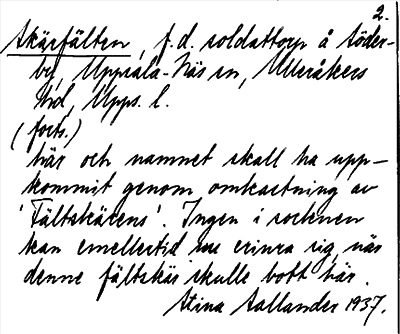 2.
Skärfälten, f.d. soldattorp å Söder-
by, Uppsala-Näs sn, Ulleråkers
hd, Upps. l.
(forts.)
här och namnet skall ha upp-
kommit genom omkastning av
'Fältskärens'. Ingen i socknen
kan emellertid nu erinra sig när
denne fältskär skulle bott här.
Stina Hallander 1937.